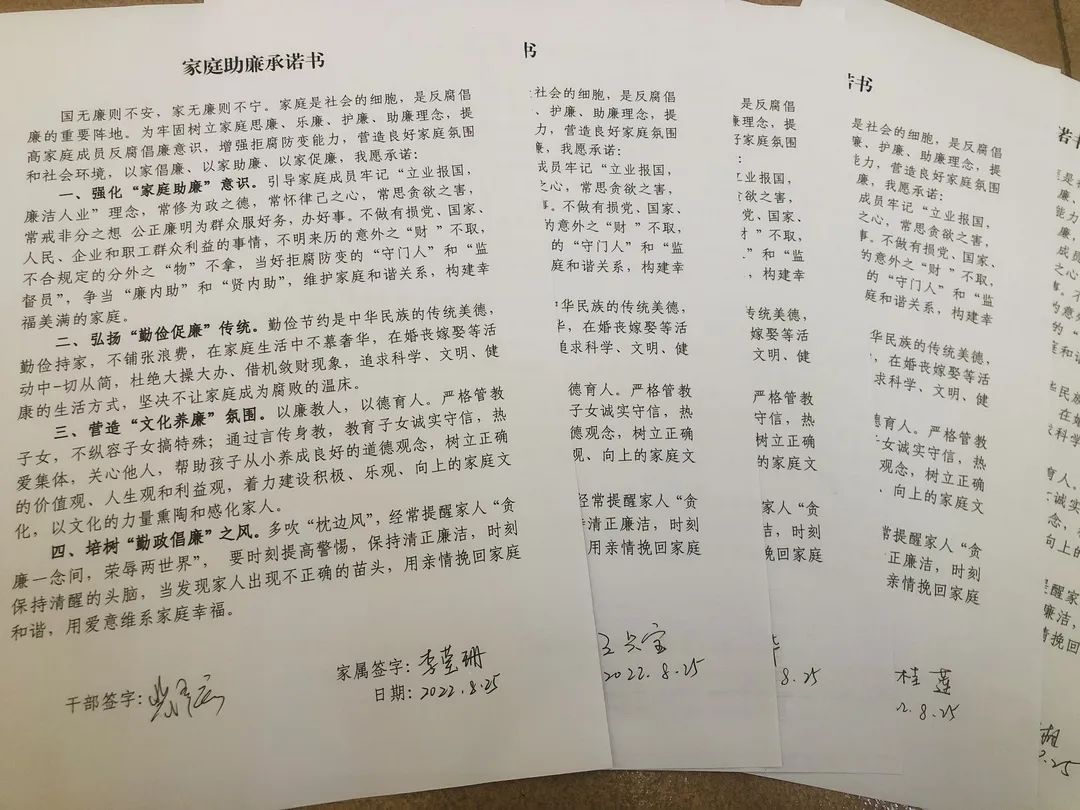 家庭助廉承诺书
国无廉则不安，家无廉则不宁。家庭是社会的细胞，是反腐倡
廉的重要阵地。为牢固树立家庭思廉、乐廉、护廉、助廉理念，提
高家庭成员反腐倡廉意识，增强拒腐防变能力，营造良好家庭氛围
和社会环境，以家倡廉、以家助廉、以家促廉，我愿承诺：
一、强化“家庭助廉”意识。引导家庭成员牢记“立业报国，
廉洁人业”理念，常修为政之德，常怀律己之心，常思贪欲之害，
常戒非分之想 公正廉明为群众服好务，办好事。不做有损党、国家、
人民、企业和职工群众利益的事情，不明来历的意外之“财 ”不取，
不合规定的分外之“物”不拿，当好拒腐防变的“守门人”和“监
督员”，争当“廉内助”和“贤内助”，维护家庭和谐关系，构建幸
福美满的家庭。
二、弘扬“勤俭促廉”传统。勤俭节约是中华民族的传统美德，
勤俭持家，不铺张浪费，在家庭生活中不慕奢华，在婚丧嫁娶等活
动中-切从简，杜绝大操大办、借机敛财现象，追求科学、文明、健
康的生活方式，坚决不让家庭成为腐败的温床。
三、营造“文化养廉”氛围。以廉教人，以德育人。严格管教
子女，不纵容子女搞特殊；通过言传身教，教育子女诚实守信，热
爱集体，关心他人，帮助孩子从小养成良好的道德观念，树立正确
的价值观、人生观和利益观，着力建设积极、乐观、向上的家庭文
化，以文化的力量熏陶和感化家人。
四、培树“勤政倡廉”之风。多吹“枕边风”，经常提醒家人“贪
廉一念间，荣辱两世界”， 要时刻提高警惕，保持清正廉洁，时刻
保持清醒的头脑，当发现家人出现不正确的苗头，用亲情挽回家庭
和谐，用爱意维系家庭幸福。
家属签字：李莹珊
干部签字：
日期：2022.8.25
书
社会的细胞，是反腐倡
、护廉、助廉理念，提
力，营造良好家庭氛围
廉，我愿承诺：
成员牢记“立业报国，
之心，常思贪欲之害，
事。不做有损党、国家、
的意外之“财 ”不取，
的“守门人”和“监
庭和谐关系，构建幸
中华民族的传统美德，
华，在婚丧嫁娶等活
追求科学、文明、健
德育人。严格管教
子女诚实守信，热
德观念，树立正确
观、向上的家庭文
经常提醒家人“贪
清正廉洁，时刻
用亲情挽回家庭
2022.8.25
是反腐倡
廉理念，提
好家庭氛围
：
立业报国，
贪欲之害，
党、国家、
财 ”不取，
”和“监
，构建幸
传统美德，
嫁娶等活
文明、健
严格管教
守信，热
树立正确
的家庭文
家人“贪
洁，时刻
挽回家庭
8.25
诺书
是社会的细胞，是反腐倡
廉、护廉、助廉理念，提
能力，营造良好家庭氛围
廉，我愿承诺：
成员牢记“立业报国，
之心，常思贪欲之害，
事。不做有损党、国家、
的意外之“财 ”不取，
的“守门人”和“监
庭和谐关系，构建幸
华民族的传统美德，
，在婚丧嫁娶等活
求科学、文明、健
德育人。严格管教
子女诚实守信，热
观念，树立正确
、向上的家庭文
常提醒家人“贪
正廉洁，时刻
亲情挽回家庭
桂莲
2.8.25
诺书